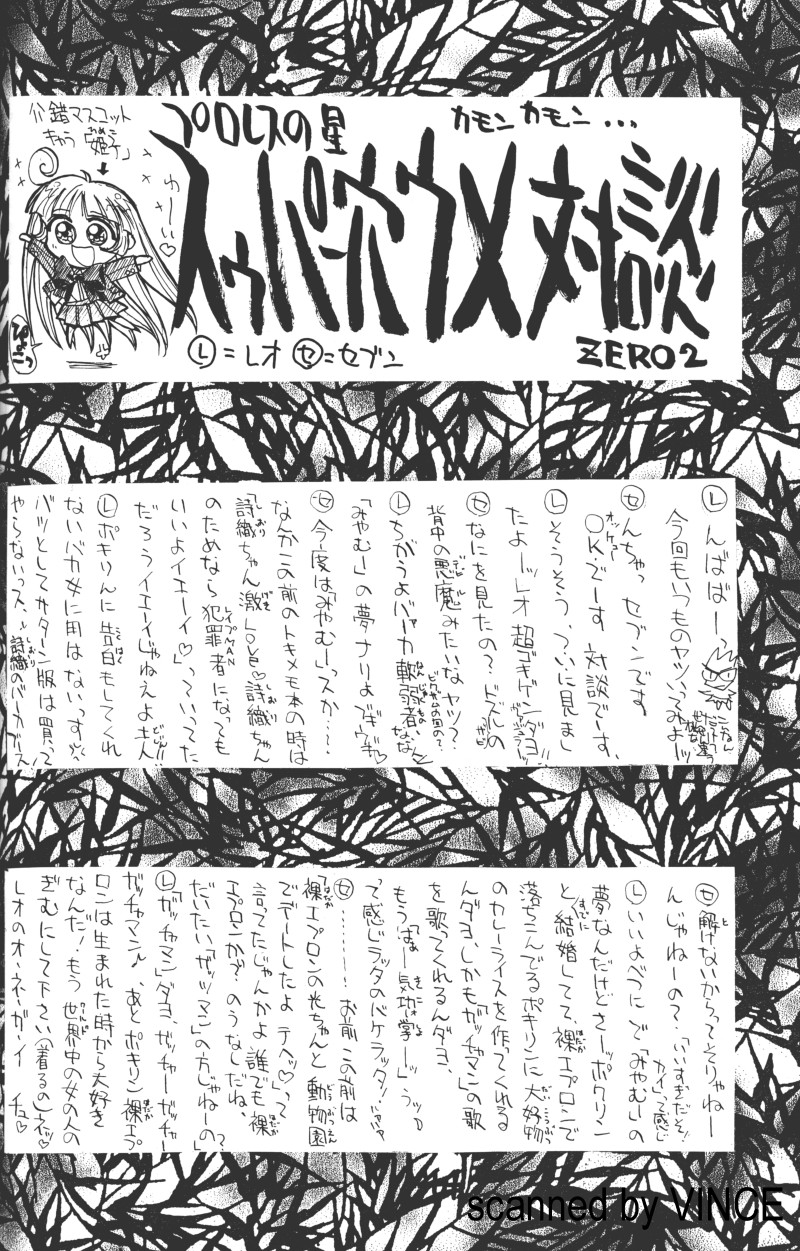 介錯マスコット
きゃら「姫子」
ひめこ
わーい♡
ぴょこっ
プロレスの星
カモン カモン...
スゥパー穴ウメ対談
ZERO2
Ⓛ=レオ Ⓢ=セブン
Ⓛ んばばーっ
今回もいつものヤツいってみよーッ
㋝ んちゃっ セブンです
OKでーす 対談です、
オッケェー
Ⓛ そうそう、ついに見まし
たよー レオ超ゴキゲンダヨ!!
㋝ なにを見たの?ドズルの
背中の悪魔みたいなヤツ?
Ⓛ ちがうよバーカ軟弱者な
「みやむー」の夢ナリよブギウギ♡
㋝ 今度は「みやむー」っスか…!
なんかこの前のトキメモ本の時は
「詩織ちゃん激Love♡詩織ちゃん
のためなら犯罪者になっても
いいよイエーイ♡」っていってた
だろうイエーイじゃねえよ土人!!
Ⓛ ポキりんに告白もしてくれ
ないバカ女に用はないっす※
バツとしてサターン版は買って
やらないっス、詩織のバーカブース!
㋝ 解けないからってそりゃねー
んじゃねーの?「いいすぎだぞ!
カイ」って感じ
Ⓛ いいよべつにで「みやむー」の
夢なんだけどさーッポクリン
と結婚してて、裸エプロンで
落ちこんでるポキリンに大好物
のカレーライスを作ってくれる
んダヨ、しかも「ガッチャマン」の歌
を歌ってくれるんダヨ、
もう「はぁー気功学ー」ってッ
って感じラッタのバケラッタ!
㋝ ………!お前この前は
「裸エプロンの光ちゃんと動物園
でデートしたよテヘッ♡」って
言ってたじゃんかよ誰でも裸
エプロンかのうなしだね、
だいたい「ガッツマン」の方じゃねーの?」
Ⓛ「ガッチャマン」ダヨ、ガッチャーガッチャー
ガッチャマン♪、あとポキリン裸エプ
ロンは生まれた時から大好き
なんだ!もう世界中の女の人の
ぎむにして下さい(着るの)ネッ♡
レオのオ・ネ・ガ・イ チュ♡
scanned by VINCE